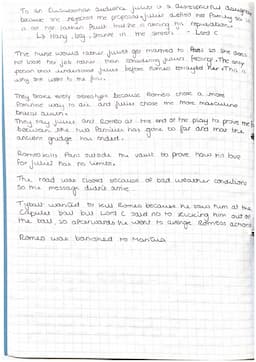 To an Elizabethan audience Juliet is a disrespectful daughter
because she rejected the proposal. Juliet defied her family so is
a not her father's fault that he is ruining his reputation.
↳ Hang, beg, starve in the streets - Lord C
The nurse would rather Juliet get married to so she does
not lose her job rather than considering Juliet's feelings. The only
person that understood Juliet before Romeo betrayed her. This is
why she went to the friar.
They broke every stereotype because Romeo chose a more
feminine way to die and Juliet chose me more masculine
brutal death.
They say Juliet and Romeo at the end of the play to prove me
between the two families has gone to far and that the
ancient grudge has ended.
Romeo kills Paris outside the vault to prove how his love
for Juliet has no limits.
The road was closed because of bad weather conditions
so the message didn't arrive.
Tybalt wanted to kill Romeo because he saw him at the
Capulet ball but Lord C said no to kicking him out of
the ball, so afterwards he went to avenge Romeo's actions
Romeo was banished to Mantua